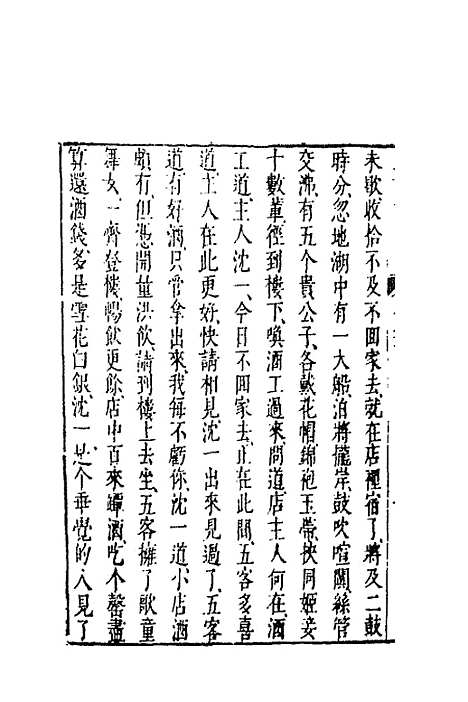 未歇收拾不及不回家去就在店裡宿了將及二鼓
時分忽地湖中有一大船泊將攏岸鼓吹喧闐絲管
交沸有五个貴公子各戴花帽錦袍玉帶挾同姬妾
十數輩徑到樓下喚酒工過來問道店主人何在酒
工道主人沈一今日不回家去正在此間五客多喜
道主人在此更好快請相見沈一出來見過了五客
道有好酒只管拿出來我每不虧你沈一道小店酒
頗有但憑開量洪飲請到樓上去坐五客擁了歌童
舞女一齊登樓暢飲更餘店中百來罈酒吃个罄盡
算還酒錢多是雪花白銀沈一是个乖覺的人見了